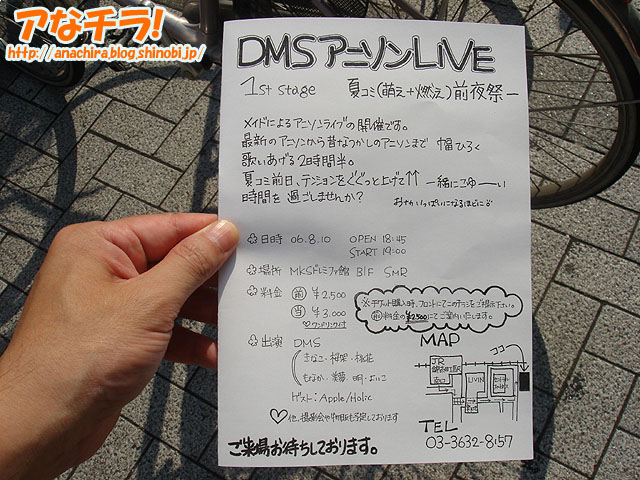 アなチラ!
http://anachira.blog.shinobi.jp/
DMS アニソンLIVE
1st stage 夏コミ(萌え+燃え)前夜祭ー
メイドによるアニソンライブの開催です。
最新のアニソンから昔なつかしのアニソンまで 幅ひろく
歌いあげる2時間半。
夏コミ前日、テンションをぐぐっと上げて↑↑ 一緒にこゆーーい
時間を過ごしませんか?
日時 06.8.10 OPEN 18:45
START 19:00
場所 MKSドレミファ館 B1F SMR
料金 前 ¥2,500
当 ¥3,000
♡ワンドリンク付
※チケット購入時、フロントにてこのチラシをご提示下さい。
前料金の¥2,500にてご案内いたします。
出演 DMS
きなこ・柑架・桃花
もなか・
ゲスト:Apple/Holic
♡他、撮影会や物販も予定しております
ご来場お待ちしております。
MAP
ココ
JR
錦糸町駅
南口
LIVIN
TEL
03-3632-8157